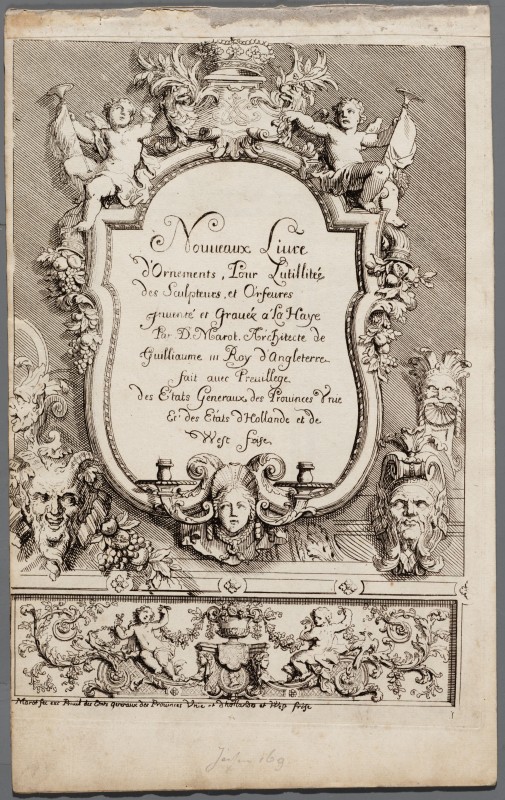 Nouueaux Liure
d'Ornements, Pour Lutillité
des Sculpteurs, et Orfeures
jnuenté et Grauéz a La Haye
Par D. Marot, Architecte de
Guilliaume III Roy d'Angleterre
fait auec Preuillege
des Etats Generaux des Prouinces Vnie
Et des Etats d'Hollande et de
West frise
Marot fec exc Priuil des Etats generaux des Prouinces Vnie et d'hollande et West frise
1